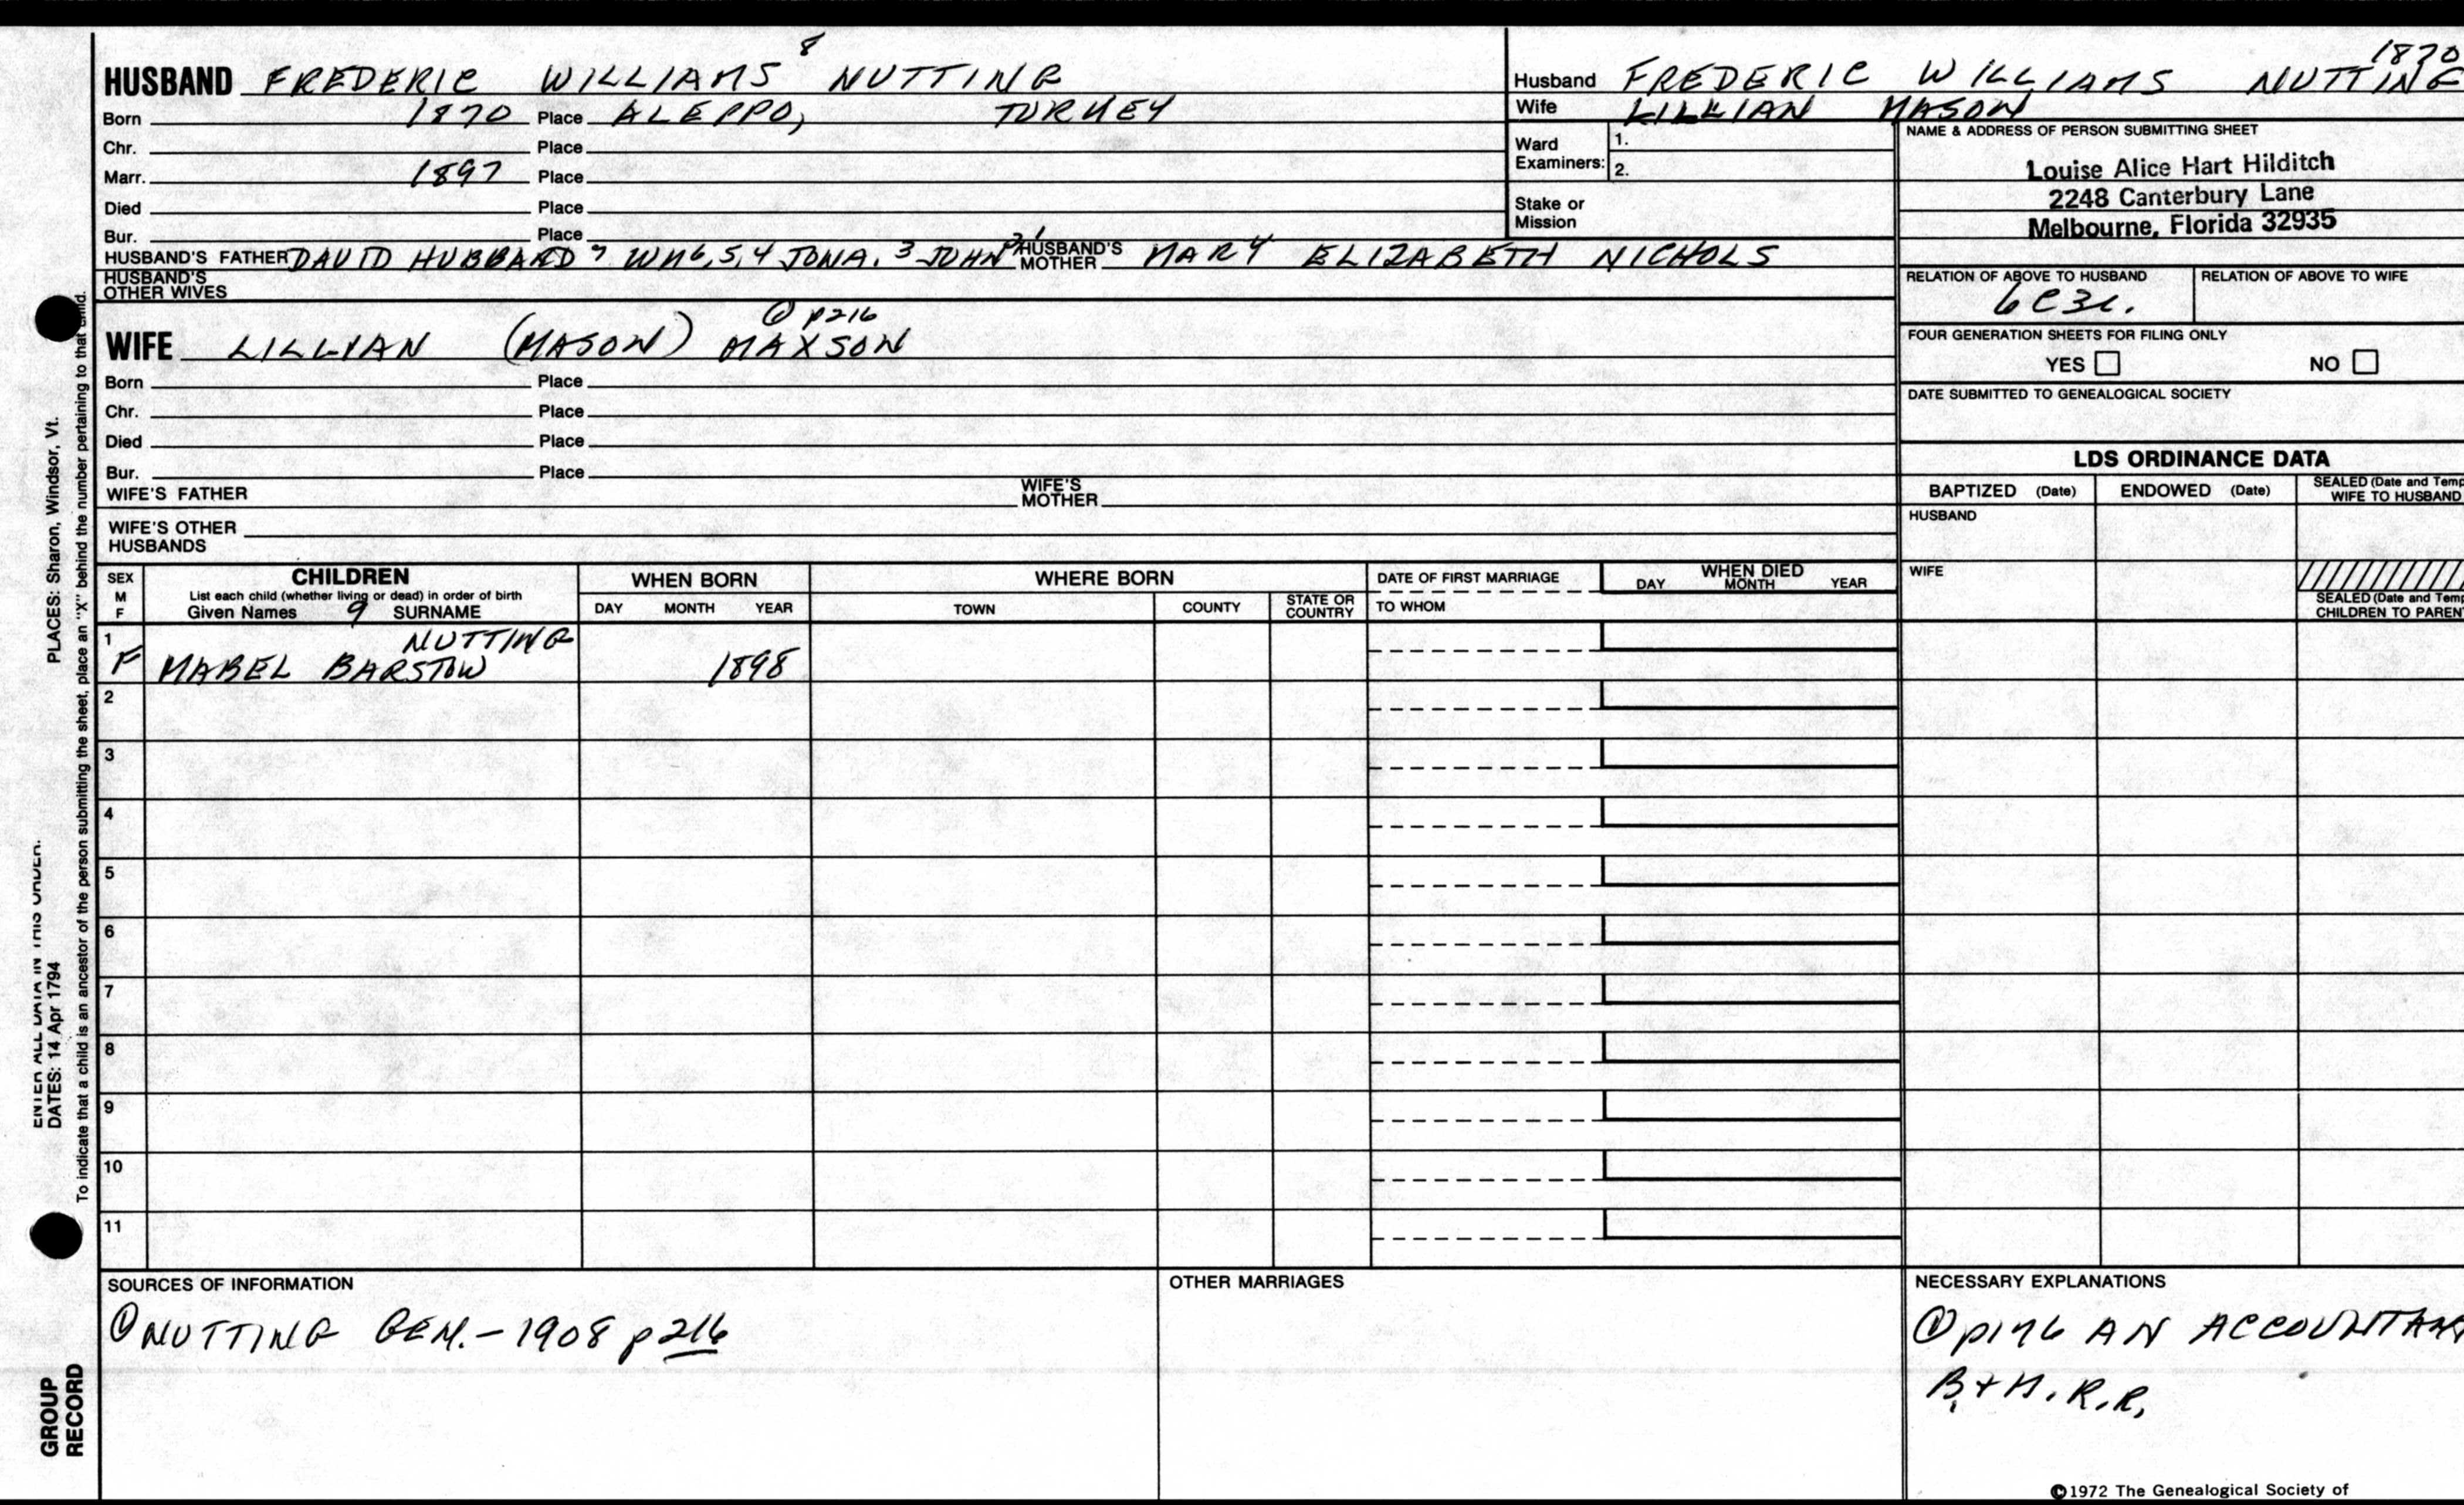 HUSBAND FREDERIC WILLIAMS 8 NUTTING
Born 1870 Place ALEPPO, TURKEY
Chr. Place
Marr. 1897 Place
Died Place
Bur. Place
HUSBAND'S FATHER DAVID HUBBARD 7 WM6,5,4 JONA. 3 JOHN 2,1 HUSBAND'S MOTHER MARY ELIZABETH NICHOLS
HUSBAND'S OTHER WIVES
WIFE LILLIAN (MASON) MAXSON ① p216
Born Place
Chr. Place
Died Place
Bur. Place
WIFE'S FATHER WIFE'S MOTHER
WIFE'S OTHER HUSBANDS
1870
Husband FREDERIC WILLIAMS NUTTING
Wife LILLIAN MASON
Ward Examiners: 1.
2.
Stake or Mission
NAME & ADDRESS OF PERSON SUBMITTING SHEET
Louise Alice Hart Hilditch
2248 Canterbury Lane
Melbourne, Florida 32935
RELATION OF ABOVE TO HUSBAND RELATION OF ABOVE TO WIFE
6C3r.
FOUR GENERATION SHEETS FOR FILING ONLY
YES NO
DATE SUBMITTED TO GENEALOGICAL SOCIETY
LDS ORDINANCE DATA
BAPTIZED (Date) ENDOWED (Date) SEALED (Date and Temp
WIFE TO HUSBAND
HUSBAND
WIFE
SEALED (Date and Temp
CHILDREN TO PAREN
SEX M F
CHILDREN
List each child (whether living or dead) in order of birth
Given Names 9 SURNAME
WHEN BORN
DAY MONTH YEAR
WHERE BORN
TOWN COUNTY STATE OR COUNTRY
DATE OF FIRST MARRIAGE
TO WHOM
WHEN DIED
DAY MONTH YEAR
1 NUTTING
F MABEL BARSTOW 1898
2
3
4
5
6
7
8
9
10
11
SOURCES OF INFORMATION
① NUTTING GEN.-1908 p216
OTHER MARRIAGES
NECESSARY EXPLANATIONS
① p176 AN ACCOUNTANT
B+M.R.R.
©1972 The Genealogical Society of
PLACES: Sharon, Windsor, Vt.
ENTER ALL DATA IN THIS ORDER.
DATES: 14 Apr 1794
To indicate that a child is an ancestor of the person submitting the sheet, place an "X" behind the number pertaining to that child.
GROUP
RECORD